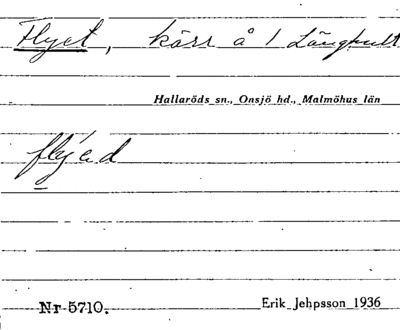 Flyet, kärr å 1 Långhult
Hallaröds sn., Onsjö hd., Malmöhus län
flýəd
Nr 5710. Erik Jehpsson 1936